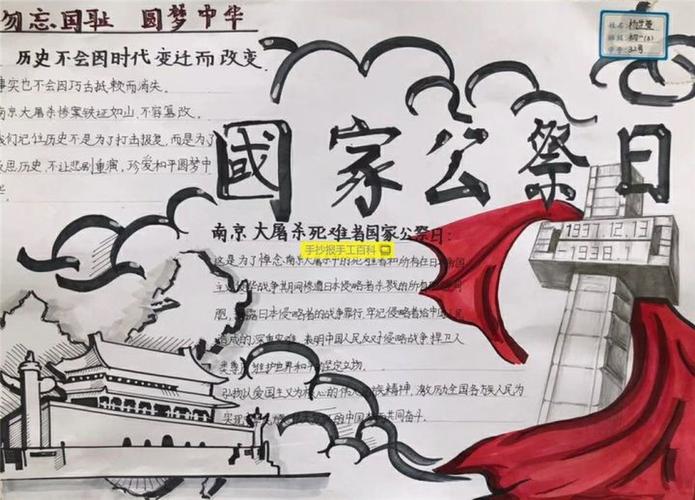 勿忘国耻 圆梦中华
历史不会因时代变迁而改变
事实也不会因巧舌抵赖而消失。
南京大屠杀惨案铁证如山,不容篡改。
我们记住历史不是为了打击报复,而是为了
反思历史,不让悲剧重演,珍爱和平圆梦中
华。
姓名:
班级:初一(8)
学号:32号
國家公祭日
1937.12.13
1938.1
南京大屠杀死难者国家公祭日:
手抄报手工百科
这是为了悼念南京大屠杀中的死难者和所有在日本帝国
主义侵华战争期间惨遭日本侵略者杀戮的所有
胞,露日本侵略者的战争罪行,牢记侵略者给中国人民
造成的深重灾难,表明中国人民反对侵略战争、捍卫人
类尊严、维护世界和平的坚定立场。
弘扬以爱国主义为核心的伟大民族精神,激励全国各万族人民为
实现中国梦而共同奋斗。